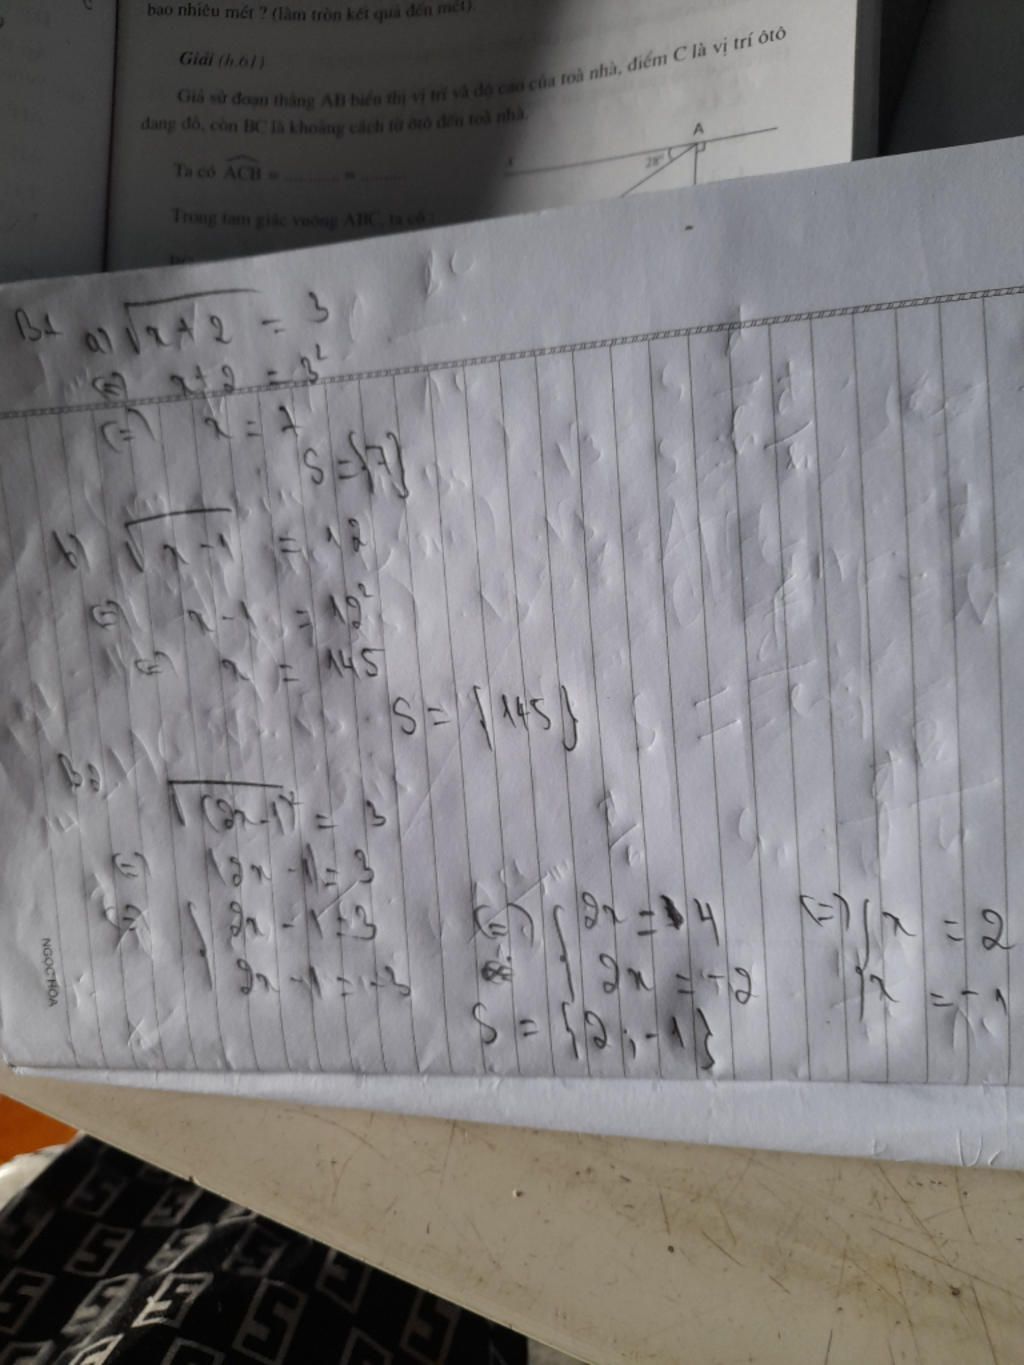 bao nhiêu mét ? (làm tròn kết quả đến mét).
Giải (h.61)
Giả sử đoạn thẳng AB biểu thị vị trí và độ cao của toà nhà, điểm C là vị trí ôtô
đang đỗ, còn BC là khoảng cách từ ôtô đến toà nhà.
Ta có ACB = ............ = ..........
A
x
28°
Trong tam giác vuông ABC, ta có :
B1 a) √x+2 = 3
(=) x+2 = 3²
(=) x = 7
S = {7}
b) √x-1 = 12
(=) x-1 = 12²
(=) x = 145
S = {145}
B2
√(2x-1)² = 3
(=) |2x-1| = 3
(=) { 2x-1=3 (=) { 2x = 4 (=) { x = 2
2x-1=-3 2x = -2 x = -1
S = {2;-1}
NGOC HOA